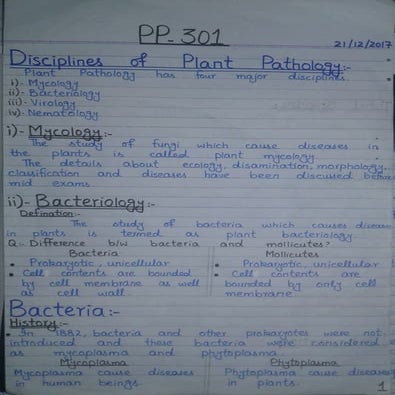 PP-301
21/12/2017
Disciplines of Plant Pathology:-
Plant Pathology has four major disciplines.
i)- Mycology
ii)- Bacteriology
iii)- Virology
iv)- Nematology
i)- Mycology:-
The study of fungi which cause diseases in
the plants is called plant mycology.
The details about ecology, disamination, morphology,
classification and diseases have been discussed before
mid exams.
ii)- Bacteriology:-
Defination:-
The study of bacteria which causes disease
in plants is termed as plant bacteriology.
Q:- Difference b/w bacteria and mollicutes?
Bacteria
• Prokaryotic, unicellular
• Cell contents are bounded
by cell membrane as well
as cell wall
Mollicutes
• Prokaryotic, unicellular
• Cell contents are
bounded by only cell
membrane
Bacteria:-
History:-
• In 1882, bacteria and other prokaryotes were not
introduced and these bacteria were considered
as mycoplasma and phytoplasma.
Mycoplasma
Mycoplasma cause diseases
in human beings.
Phytoplasma
Phytoplasma cause diseases
in plants.
1